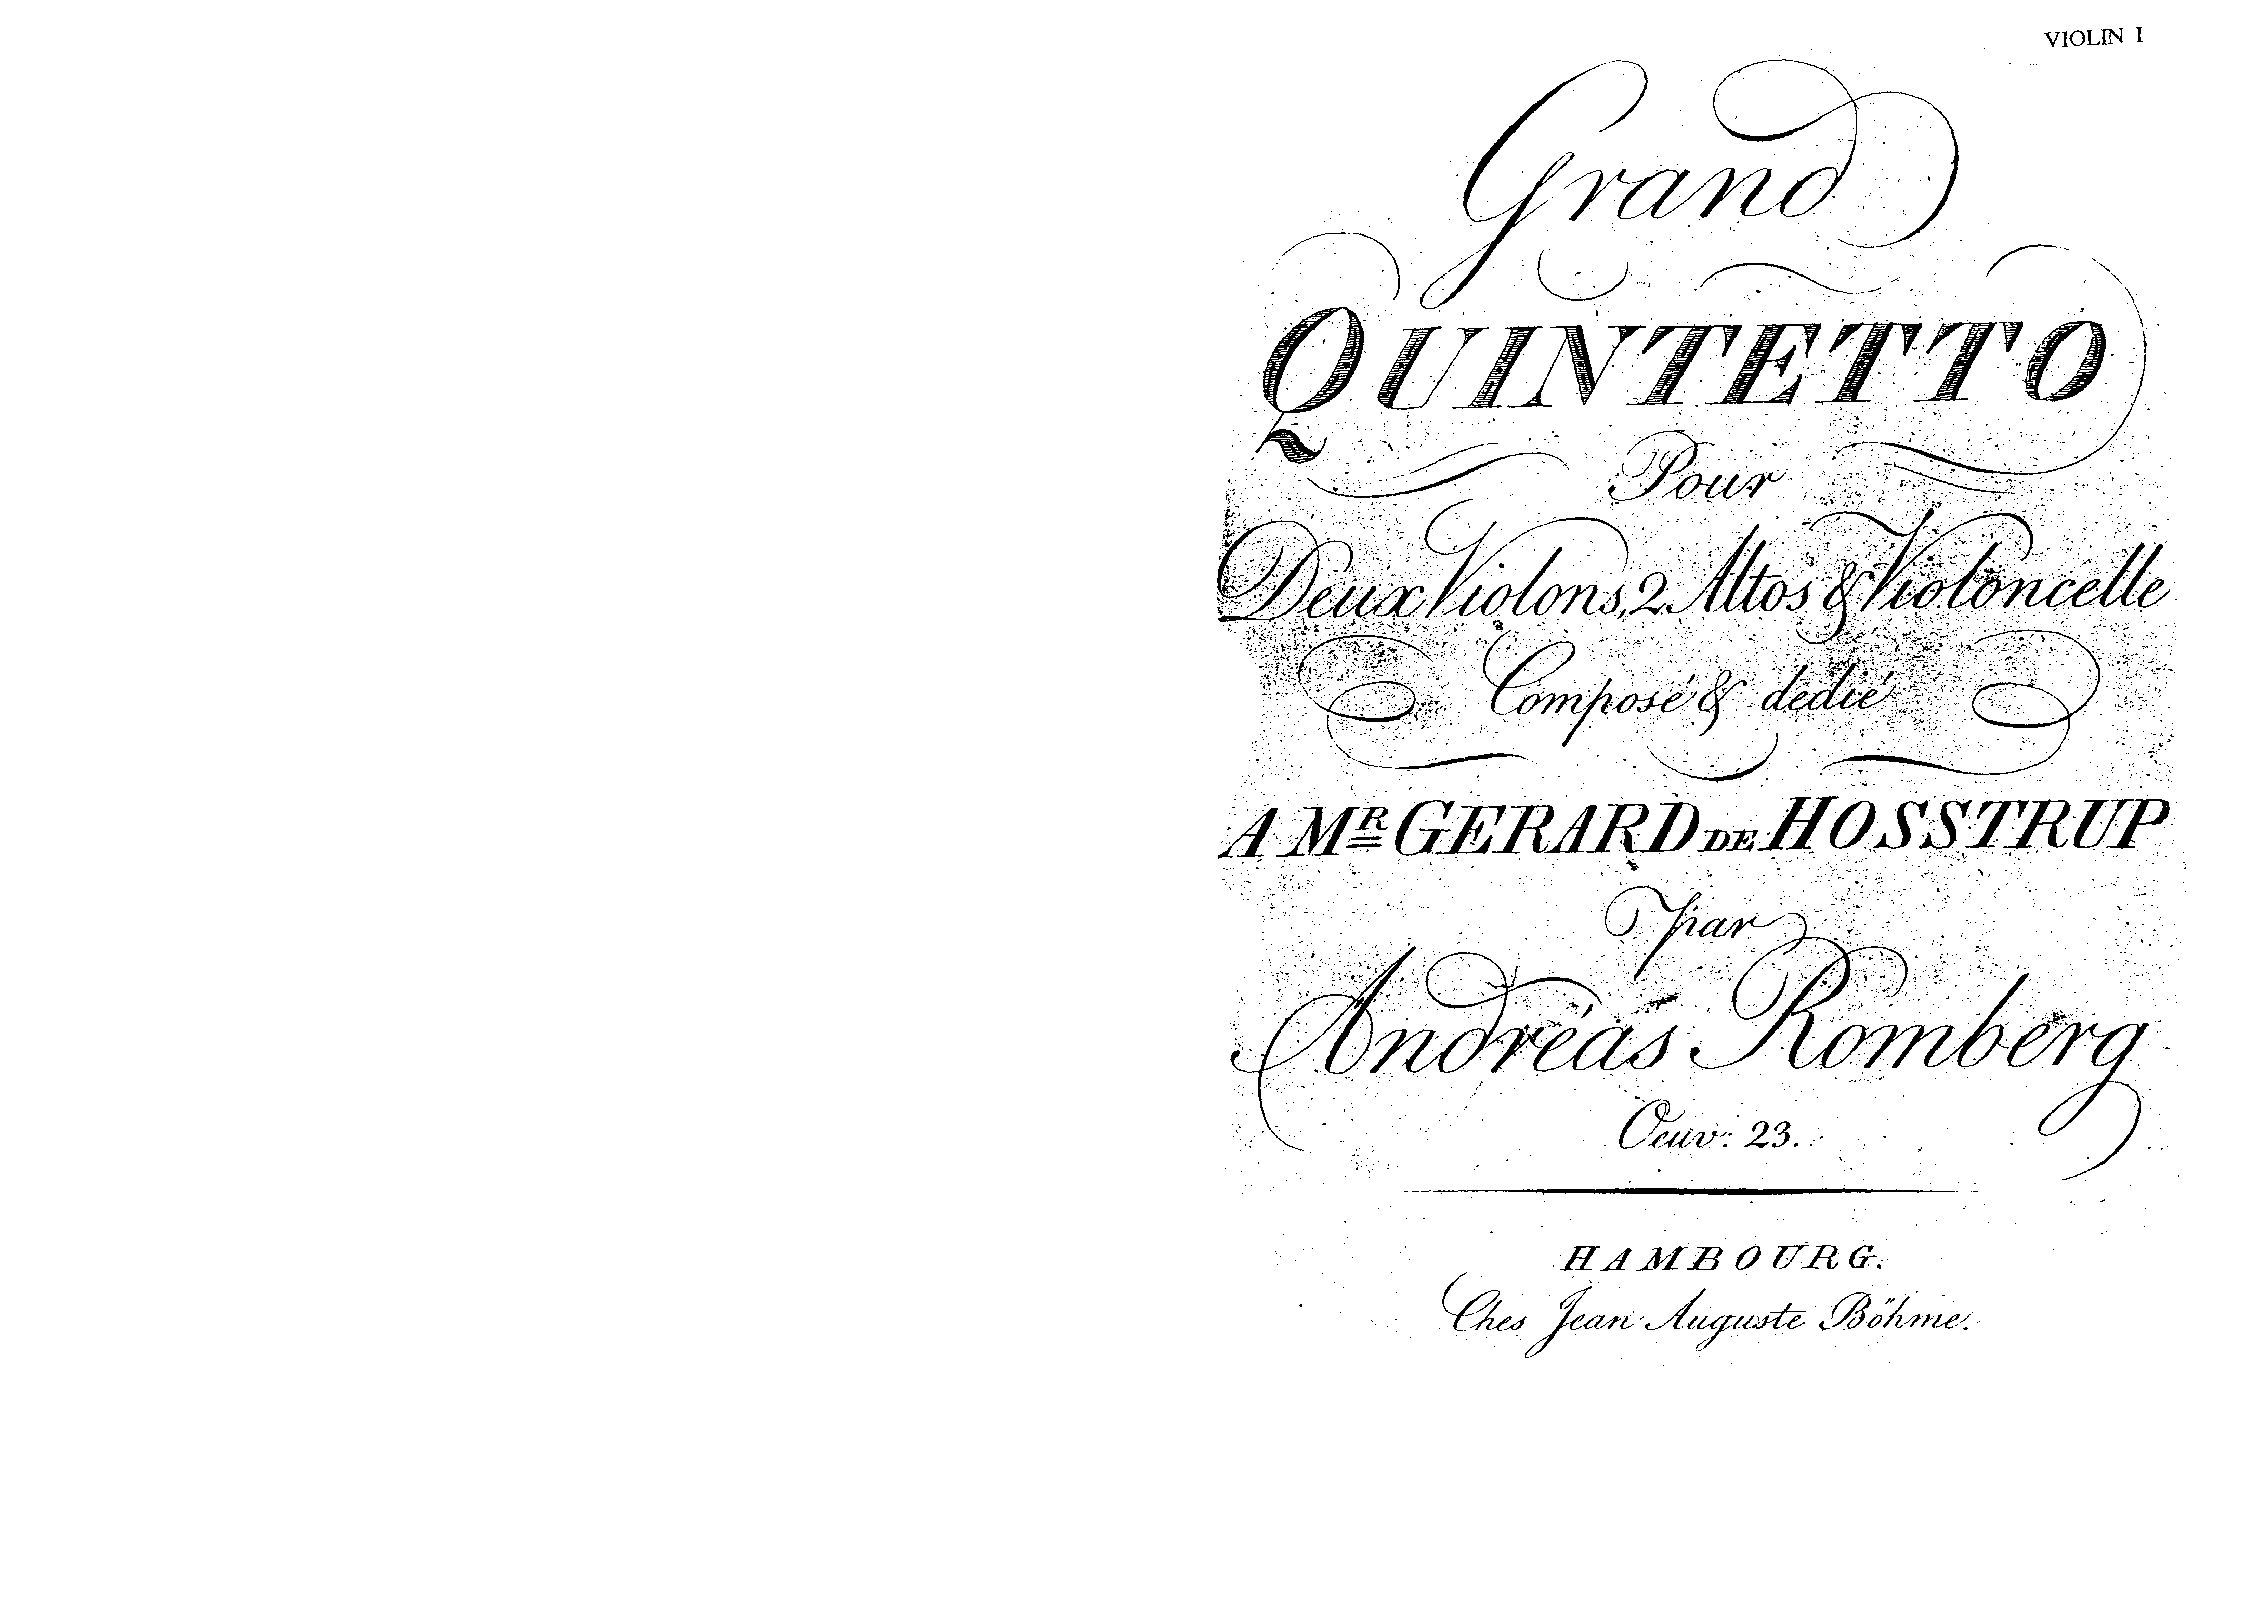 VIOLIN I
Grand
QUINTETTO
Pour
Deux Violons, 2 Altos & Violoncelle
Composé & dedié
A MR GERARD DE HOSSTRUP
par
Andréas Romberg
Oeuv: 23.
HAMBOURG.
Ches Jean Auguste Böhme.